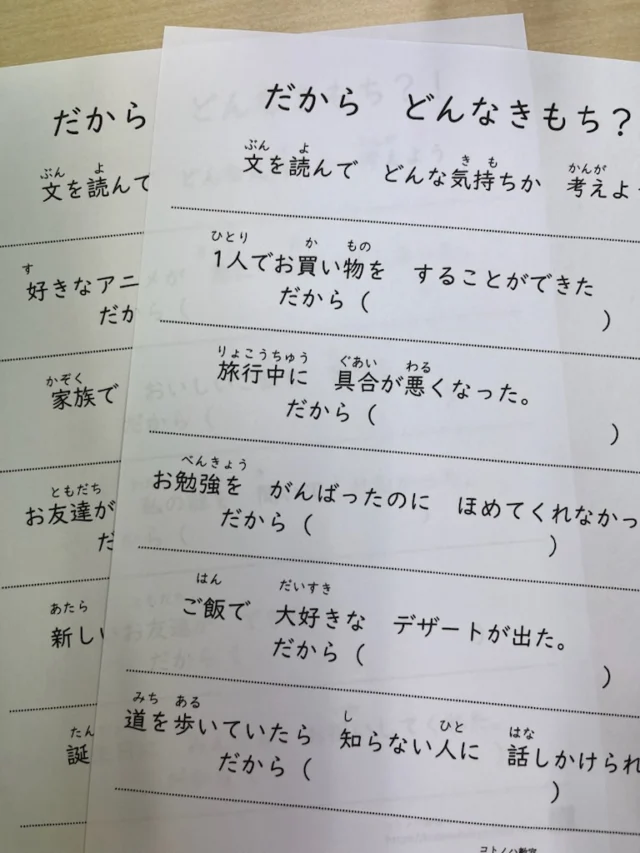 だから どんなきもち？
ぶん よ き も かんが
文を読んで どんな気持ちか 考えよ
ひとり か もの
1人でお買い物を することができた
だから（ ）
りょこうちゅう ぐあい わる
旅行中に 具合が悪くなった。
だから（ ）
べんきょう
お勉強を がんばったのに ほめてくれなかっ
だから（ ）
はん だいすき
ご飯で 大好きな デザートが出た。
だから（ ）
みち ある し ひと はな
道を歩いていたら 知らない人に 話しかけられ
だから（ ）
コトノハ教室
だから
ぶん よ
文を読んで
す
好きなアニ
だか
かぞく
家族で
ともだち
お友達が
だ
あたら
新しい
たん
誕